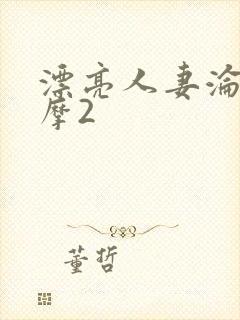 漂亮人妻淪
摩2
董哲